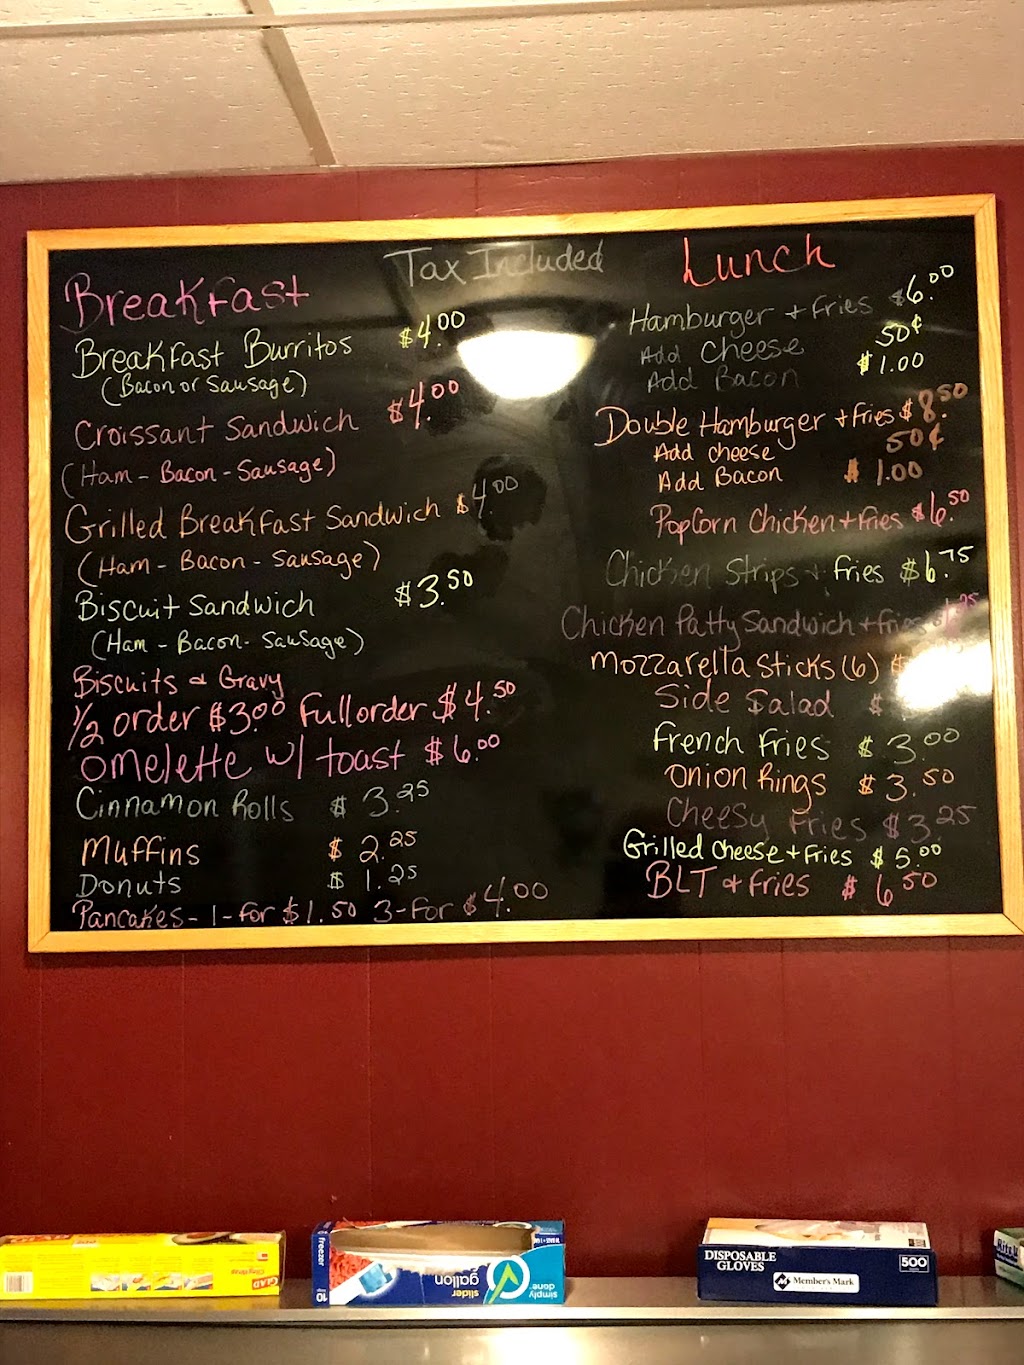 Tax Included
Breakfast
Breakfast Burritos $4.00
(Bacon or Sausage)
Croissant Sandwich $4.00
(Ham - Bacon - Sausage)
Grilled Breakfast Sandwich $4.00
(Ham - Bacon - Sausage)
Biscuit Sandwich $3.50
(Ham - Bacon - Sausage)
Biscuits & Gravy
1/2 order $3.00 Full order $4.50
Omelette w/ toast $6.00
Cinnamon Rolls $3.25
Muffins $2.25
Donuts $1.25
Pancakes - 1 - for $1.50 3 - for $4.00
Lunch
Hamburger + Fries $6.00
Add Cheese 50¢
Add Bacon $1.00
Double Hamburger + Fries $8.50
Add cheese 50¢
Add Bacon $1.00
PopCorn Chicken + Fries $6.50
Chicken Strips + Fries $6.75
Chicken Patty Sandwich + Fries
Mozzarella Sticks (6) $
Side Salad $
French Fries $3.00
Onion Rings $3.50
Cheesy Fries $3.25
Grilled Cheese + Fries $5.00
BLT & Fries $6.50
GLAD
freezer
10
slider
gallon
simply
done
DISPOSABLE
GLOVES
500
Member's Mark